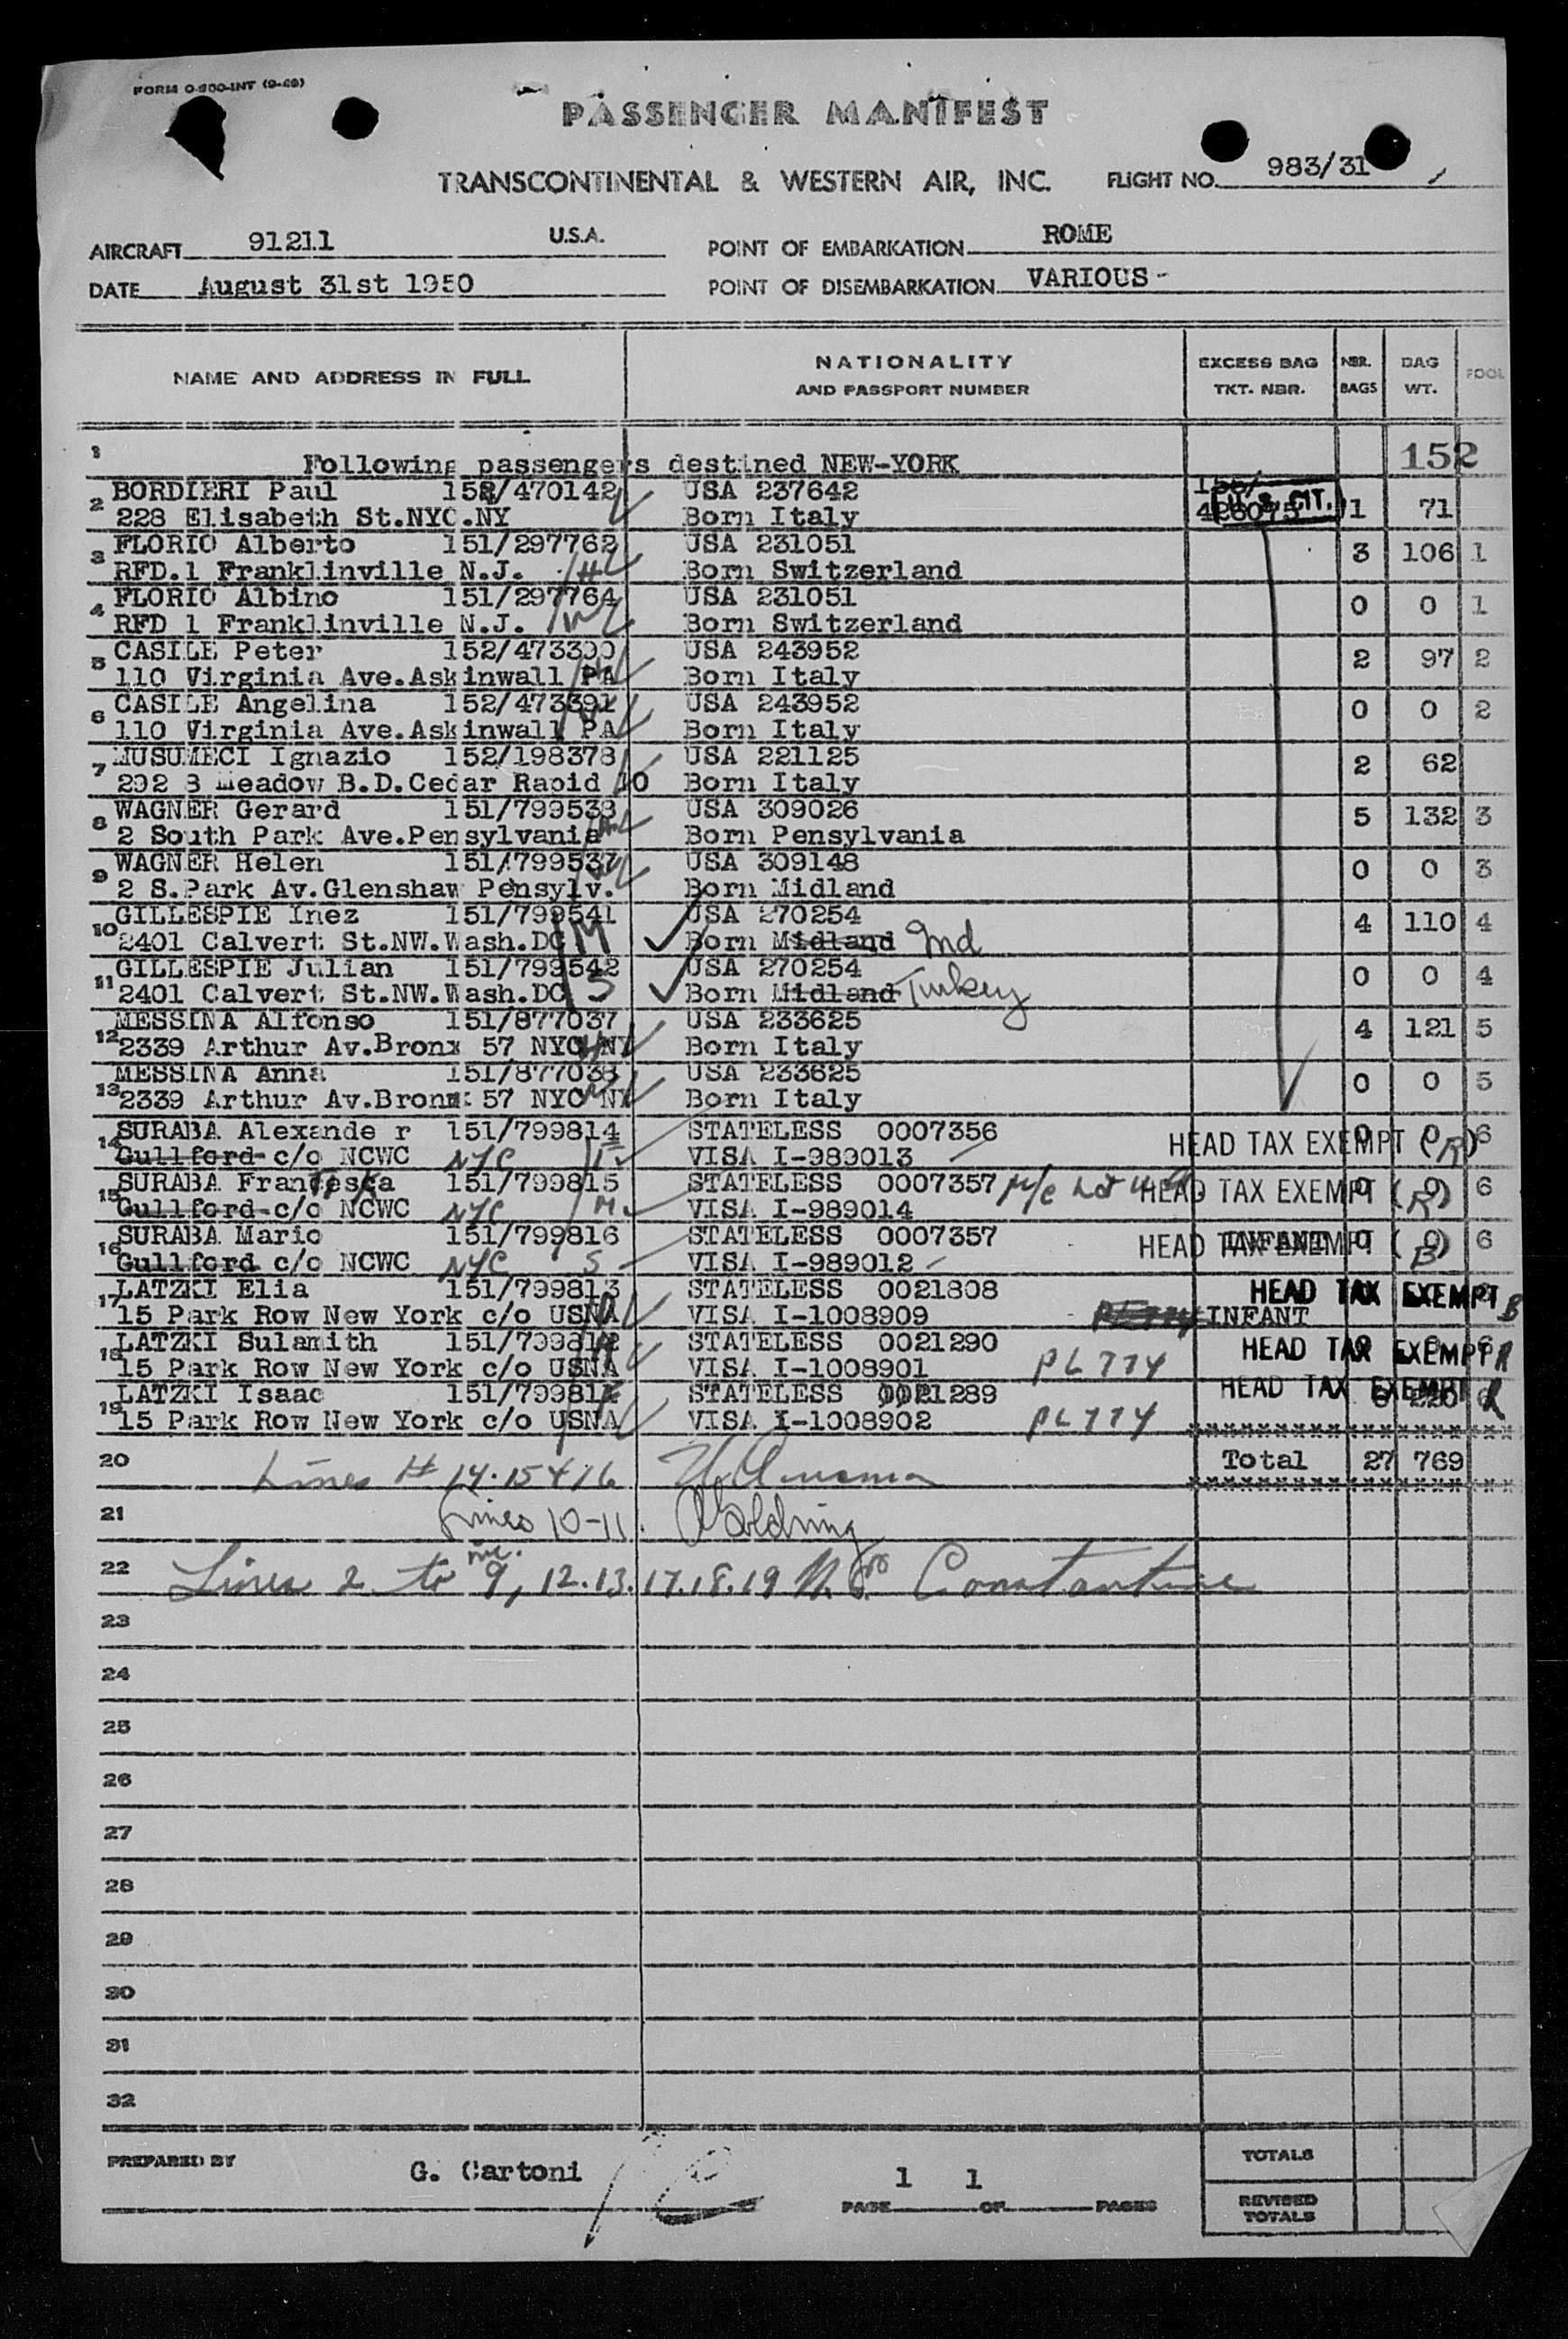 FORM O-300-INT (9-49)
PASSENGER MANIFEST
TRANSCONTINENTAL & WESTERN AIR, INC. FLIGHT NO. 983/31
AIRCRAFT 91211 U.S.A. POINT OF EMBARKATION ROME
DATE August 31st 1950 POINT OF DISEMBARKATION VARIOUS-
NAME AND ADDRESS IN FULL NATIONALITY AND PASSPORT NUMBER EXCESS BAG TKT. NBR. NBR. BAGS BAG WT. POOL
1 Following passengers destined NEW-YORK 152
2 BORDIERI Paul 152/470142 USA 237642
228 Elisabeth St.NYC.NY Born Italy U. S. CIT. 1 71
3 FLORIO Alberto 151/297762 USA 231051 3 106 1
RFD.1 Franklinville N.J. H Born Switzerland
4 FLORIO Albino 151/297764 USA 231051 0 0 1
RFD 1 Franklinville N.J. W Born Switzerland
5 CASILE Peter 152/473390 USA 243952 2 97 2
110 Virginia Ave.Askinwall PA Born Italy
6 CASILE Angelina 152/473391 USA 243952 0 0 2
110 Virginia Ave.Askinwall PA Born Italy
7 MUSUMECI Ignazio 152/198378 USA 221125 2 62
292 B Meadow B.D.Cedar Rapid IO Born Italy
8 WAGNER Gerard 151/799538 USA 309026 5 132 3
2 South Park Ave.Pensylvania Born Pensylvania
9 WAGNER Helen 151/799537 USA 309148 0 0 3
2 S.Park Av.Glenshaw Pensylv. Born Midland
10 GILLESPIE Inez 151/799541 USA 270254 4 110 4
2401 Calvert St.NW.Wash.DC M Born Midland Md
11 GILLESPIE Julian 151/799542 USA 270254 0 0 4
2401 Calvert St.NW.Wash.DC S Born Midland Turkey
12 MESSINA Alfonso 151/877037 USA 233625 4 121 5
2339 Arthur Av.Bronx 57 NYC NY Born Italy
13 MESSINA Anna 151/877038 USA 233625 0 0 5
2339 Arthur Av.Bronx 57 NYC NY Born Italy
14 SURABA Alexande r 151/799814 STATELESS 0007356 HEAD TAX EXEMPT (R) 0 0 6
Gullford c/o NCWC NYC F VISA I-989013
15 SURABA Francesca 151/799815 STATELESS 0007357 HEAD TAX EXEMPT (R) 0 0 6
Gullford c/o NCWC NYC M VISA I-989014
16 SURABA Mario 151/799816 STATELESS 0007357 HEAD TAX EXEMPT (B) INFANT 0 0 6
Gullford c/o NCWC NYC S VISA I-989012
17 LATZKI Elia 151/799813 STATELESS 0021808 HEAD TAX EXEMPT B
15 Park Row New York c/o USNA VISA I-1008909 INFANT
18 LATZKI Sulamith 151/799812 STATELESS 0021290 HEAD TAX EXEMPT R
15 Park Row New York c/o USNA VISA I-1008901 PL 774
19 LATZKI Isaac 151/799811 STATELESS 0021289 HEAD TAX EXEMPT R
15 Park Row New York c/o USNA VISA I-1008902 PL 774
20 Lines # 14.15 & 16 Total 27 769
21 Lines 10-11. Goldring
22 Lines 2 to inc. 9, 12.13.17.18.19 Constantine
23
24
25
26
27
28
29
30
31
32
PREPARED BY G. Cartoni PAGE 1 OF 1 PAGES
TOTALS
REVISED TOTALS